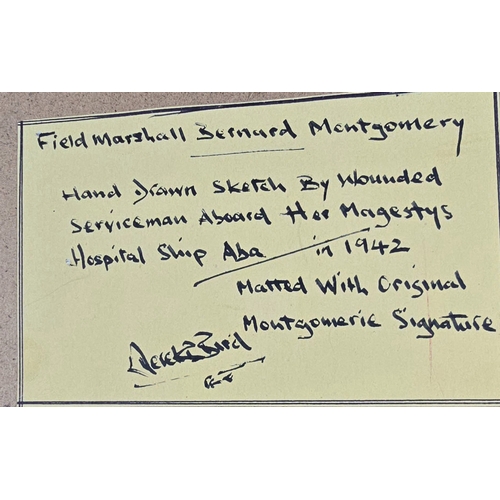 Field Marshall Bernard Montgomery
Hand Drawn Sketch By Wounded
Serviceman Aboard Her Magestys
Hospital Ship Aba in 1942
Matted With Original
Montgomerie Signature
Derek Bird